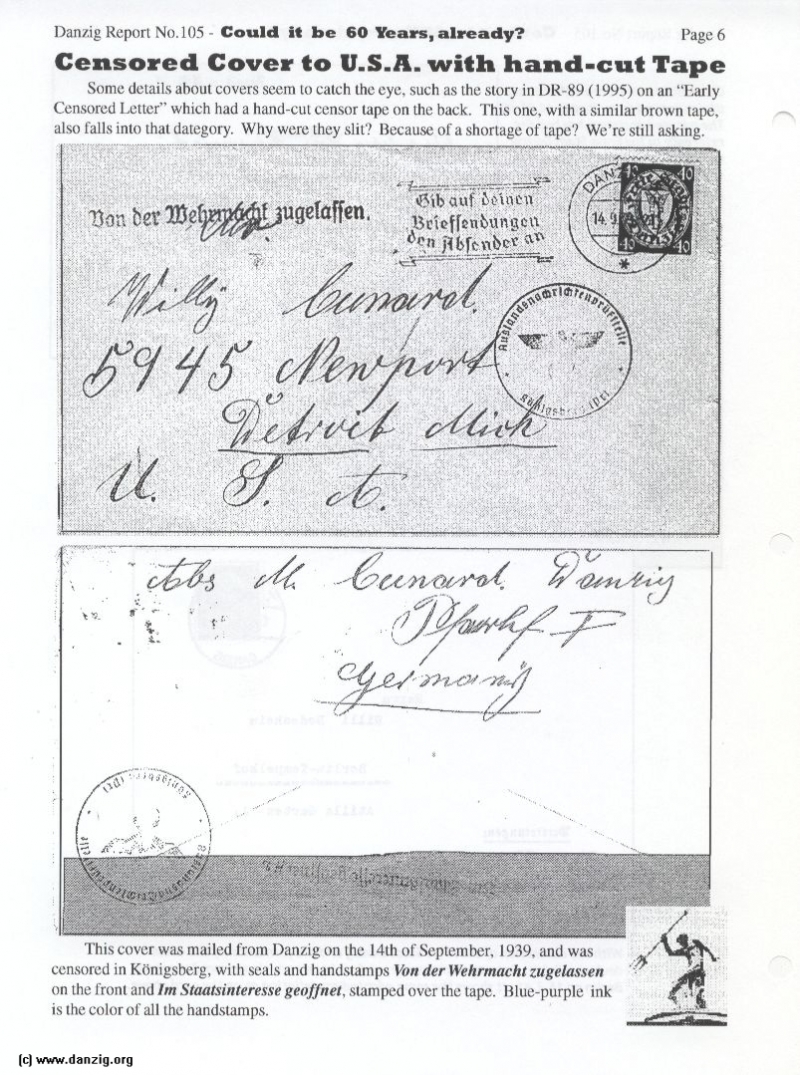 Danzig Report No.105 - Could it be 60 Years, already? Page 6
Censored Cover to U.S.A. with hand-cut Tape
Some details about covers seem to catch the eye, such as the story in DR-89 (1995) on an “Early
Censored Letter” which had a hand-cut censor tape on the back. This one, with a similar brown tape,
also falls into that dategory. Why were they slit? Because of a shortage of tape? We’re still asking.
Von der Wehrmacht zugelassen.
Gib auf deinen
Briefsendungen
den Absender an
DANZ
14.9.
40 40
40 40
Willy Cunard.
5945 Newport
Detroit Mich
U. S. A.
Auslandsnachrichtenprüfstelle
Abs M. Cunard. Danzig
Germany
Auslandsnachrichtenprüfstelle
This cover was mailed from Danzig on the 14th of September, 1939, and was
censored in Königsberg, with seals and handstamps Von der Wehrmacht zugelassen
on the front and Im Staatsinteresse geoffnet, stamped over the tape. Blue-purple ink
is the color of all the handstamps.
(c) www.danzig.org